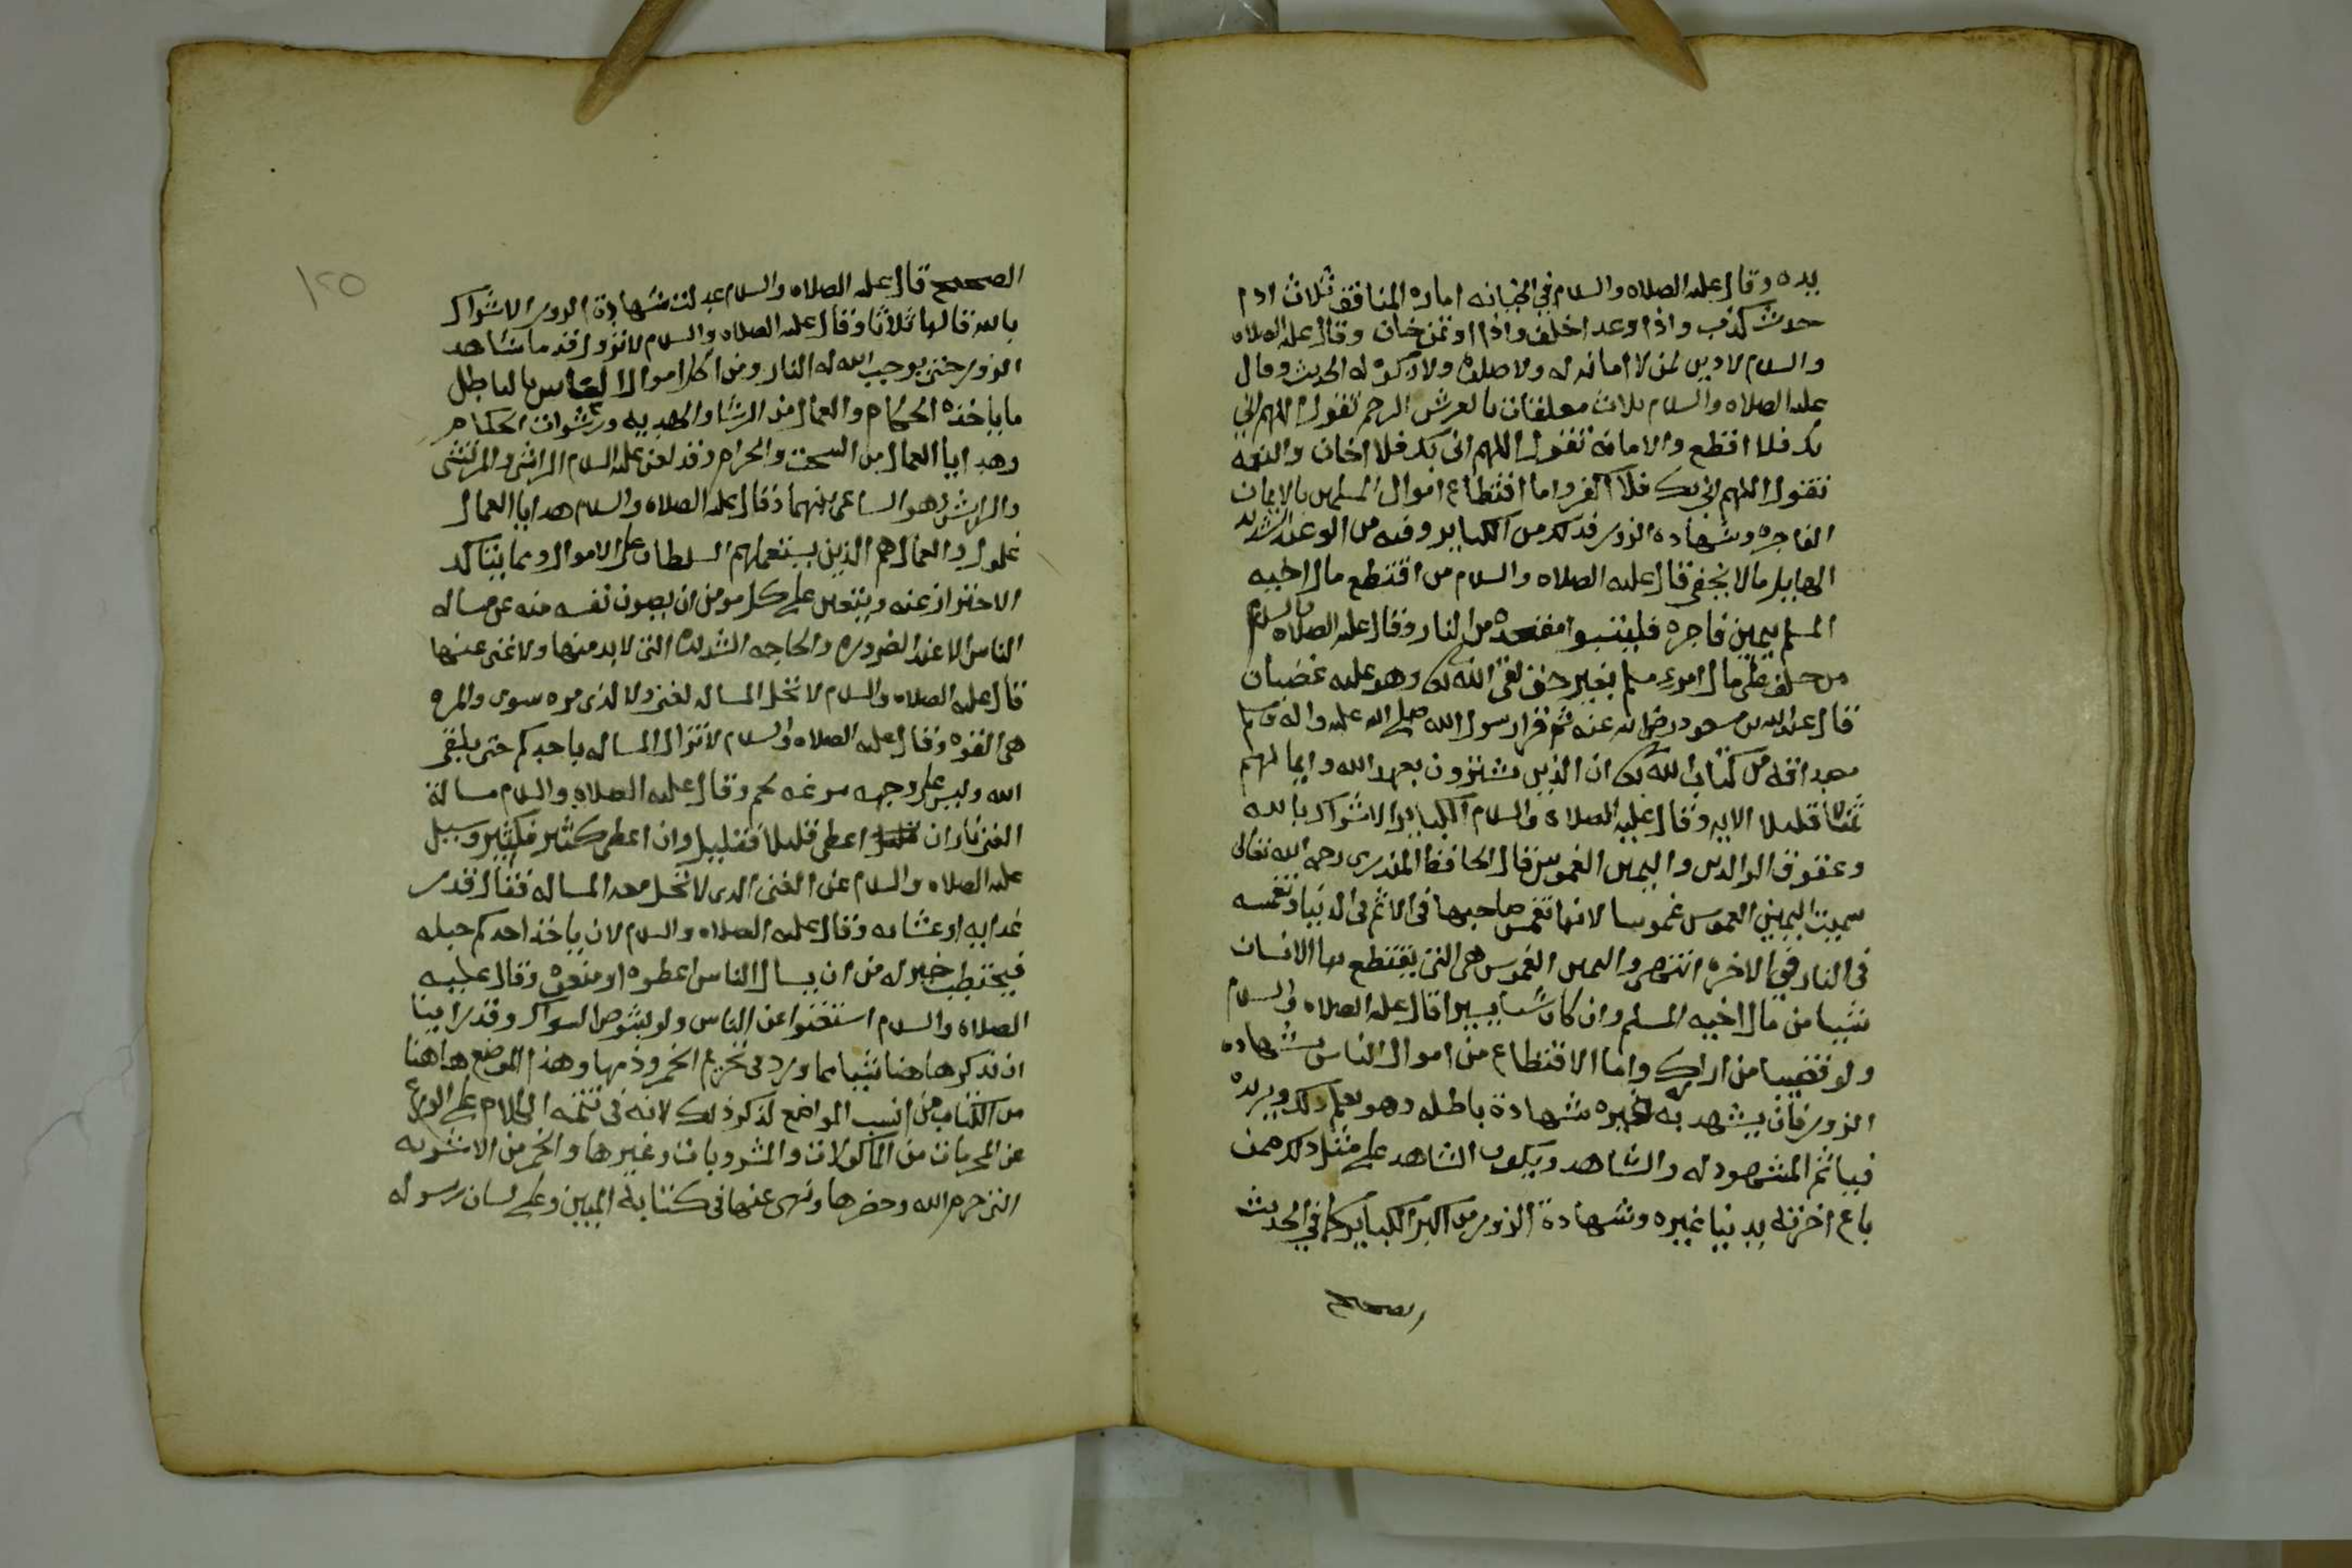 يده وقال عليه الصلاه والسلام في الخيانه اماره المنافق ثلاث اذا
حدث كذب واذا وعد اخلف واذا اوتمن خان وقال عليه الصلاه
والسلام لا دين لمن لا امانه له ولا صلاة ولا زكوة له الحديث وقال
عليه الصلاه والسلام ثلاث معلقات بالعرش الرحم تقول اللهم اني
بك فلا اقطع والامانة تقول اللهم اني بك فلا اخان والنعمة
تقول اللهم اني بك فلا اكفر واما اقتطاع اموال المسلمين بالايمان
الفاجره وشهاده الزور فذلك من الكباير وفيه من الوعيد الشديد
الهايل ما لا يخفى قال عليه الصلاه والسلام من اقتطع مال اخيه
المسلم بيمين فاجره فليتبوا مقعده من النار وقال عليه الصلاه والسلام
من حلف على مال امرء مسلم بغير حق لقي الله وهو عليه غضبان
قال عبد الله بن مسعود رضي الله عنه ثم قرا رسول الله صلى الله عليه واله وسلم
مصداقه من كتاب الله ان الذين يشترون بعهد الله وايمانهم
ثمنا قليلا الايه وقال عليه الصلاه والسلام الكباير الاشراك بالله
وعقوق الوالدين واليمين الغموس قال الحافظ المنذري رحمه الله تعالى
سميت اليمين الغموس غموسا لانها تغمس صاحبها في الاثم في الدنيا وتغمسه
في النار في الاخره انتهى واليمين الغموس هي التي يقتطع بها الانسان
شييا من مال اخيه المسلم وان كان شيا يسيرا قال عليه الصلاه والسلام
ولو قضيبا من اراك واما الاقتطاع من اموال الناس بشهاده
الزور فان يشهد به لغيره شهادة باطله وهو يعلم ذلك ويريده
فياثم المشهود له والشاهد ويكون الشاهد على مثل ذلك ممن
باع اخرته بدنيا غيره وشهادة الزور من اكبر الكباير كما في الحديث
الصحيح
١٢٥
الصحيح قال عليه الصلاه والسلام عدلت شهادة الزور الاشراك
بالله قالها ثلاثا وقال عليه الصلاه والسلام لا تزول قدما شاهد
الزور حتى يوجب الله له النار ومن اكل اموال الناس بالباطل
ما ياخذه الحكام والعمال من الرشا والهديه ورشوات الحكام
وهدايا العمال من السحت والحرام وقد لعن عليه السلام الراشي والمرتشي
والرايش وهو الساعي بينهما وقال عليه الصلاه والسلام هدايا العمال
غلول والعمال هم الذين يستعملهم السلطان على الاموال ومما يتاكد
الاحتراز عنه ويتعين على كل مومن ان يصون نفسه منه عن مساله
الناس الا عند الضروره والحاجه الشديده التي لا بد منها ولا غنى عنها
قال عليه الصلاه والسلام لا تحل المساله لغني ولا لذي مره سوى والمره
هي القوه وقال عليه الصلاه والسلام لا تزال المساله باحدكم حتى يلقى
الله وليس على وجهه مزعه لحم وقال عليه الصلاه والسلام مسالة
الغني نار ان اعطي قليلا فقليل وان اعطي كثير فكثير وسيل
عليه الصلاه والسلام عن الغنى الذي لا تحل معه المساله فقال قدر
غدايه او عشايه وقال عليه الصلاه والسلام لان ياخذ احدكم حبله
فيحتطب خير له من ان يسال الناس اعطوه او منعوه وقال عليه
الصلاة والسلام استغنوا عن الناس ولو بشوص السواك وقد راينا
ان نذكر هاهنا شييا مما ورد في تحريم الخمر وذمها وهذا الموضع هاهنا
من الكتاب من انسب المواضع لذكر ذلك لانه في تتمه الكلام على الورع
عن المحرمات من الماكولات والمشروبات وغيرها والخمر من الاشربه
التي حرم الله وحضرها ونهى عنها في كتابه المبين وعلى لسان رسوله